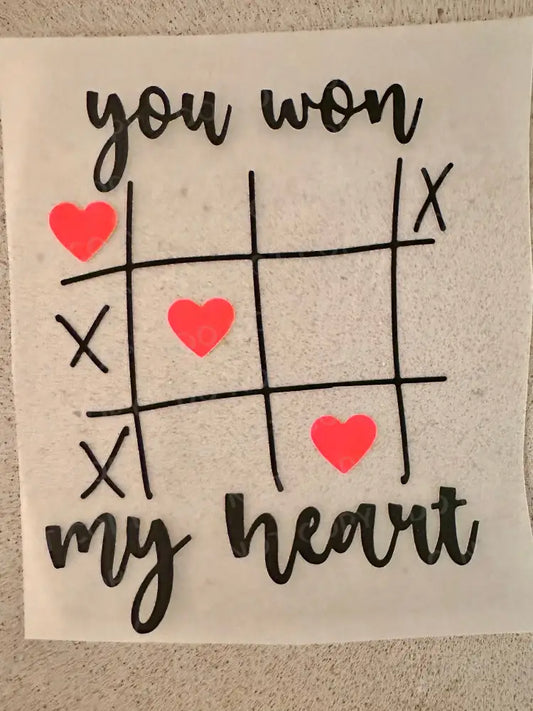 you won
X
X
X
my heart